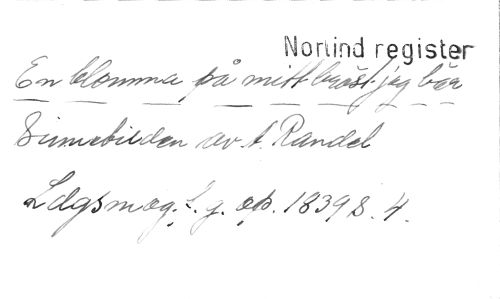 Norlind register
En blomma på mitt bröst jag bär
Sinnebilden av A. Randel
Ldgsmag. f. g. op. 1839 S. 4.